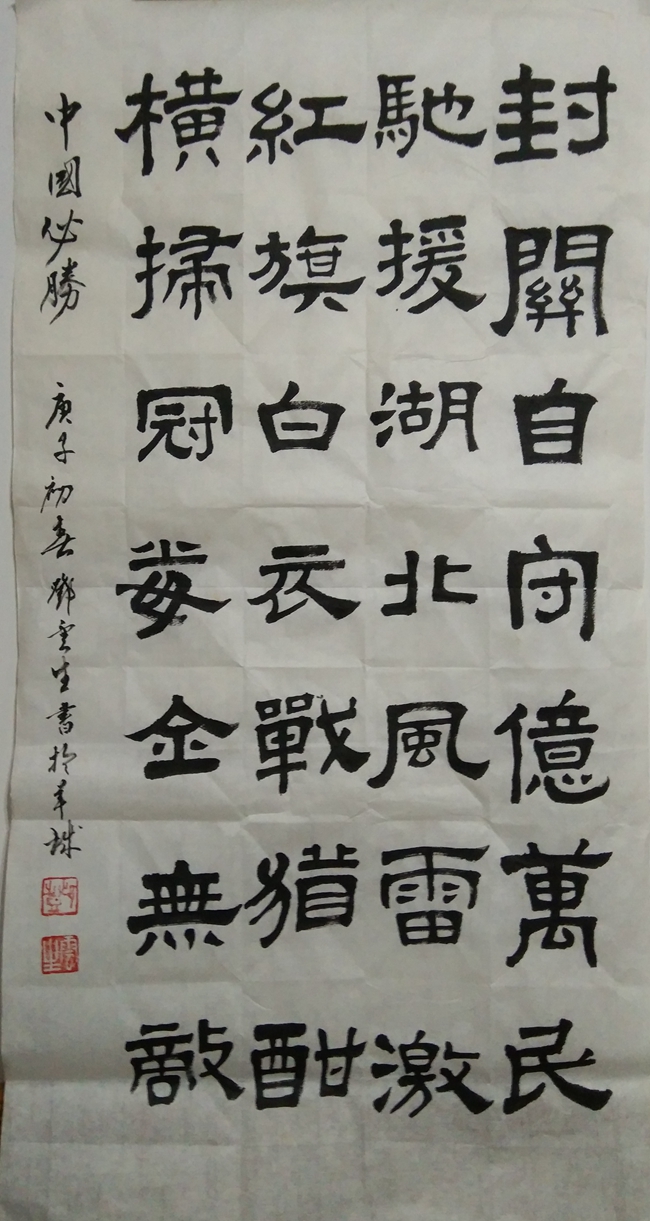 封關自守億萬民
馳援湖北風雷激
紅旗白衣戰猶酣
橫掃冠毒全無敵
中國必勝 庚子初春鄧雲生書於羊城